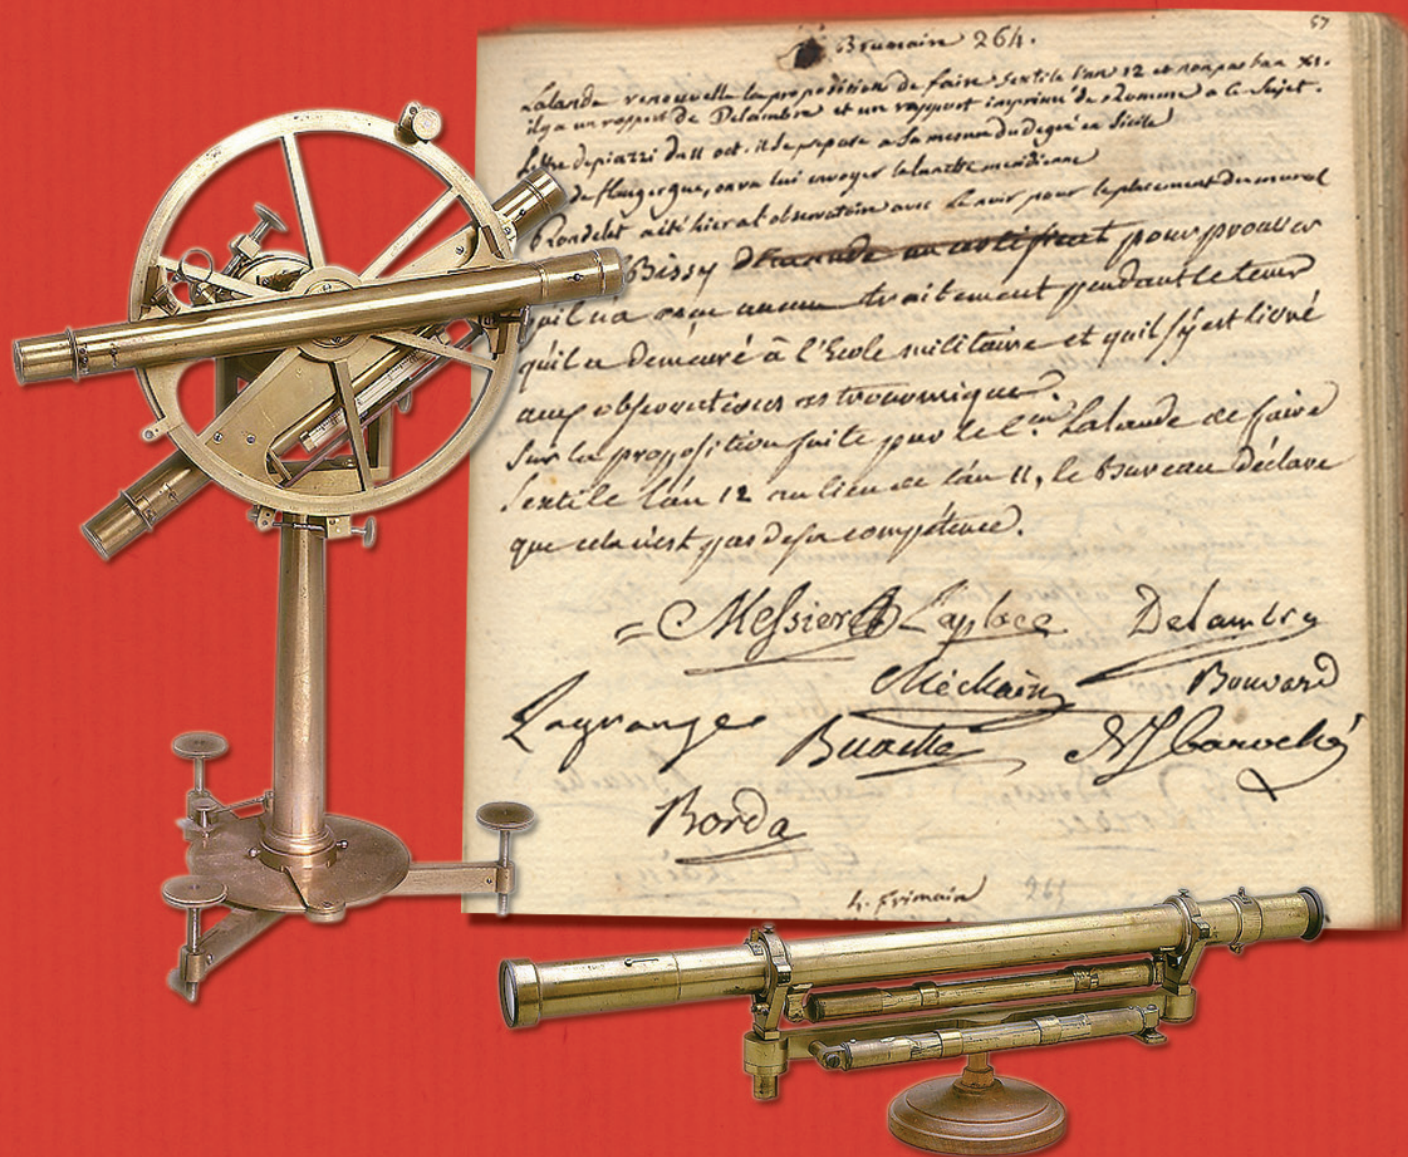 57
Brumaire 264.
Lalande renouvelle la proposition de faire sextile l'an 12 et non pas l'an XI.
il y a un rapport de Delambre et un rapport imprimé de Romme a ce sujet.
Lettre de piazzi du 11 oct. il se prepare a la mesure du degré en Sicile
de flaugergue, on va lui envoyer la lunette meridienne
Rondelet a été hier a l'observatoire avec Lenoir pour le placement du mural
Bissy demande un certificat pour prouver
qu'il n'a aucun traitement pendant le tems
qu'il a demeuré à l'Ecole militaire et qu'il s'y est livré
aux observations astronomique.
Sur la proposition faite par le C.en Lalande de faire
Sextile l'an 12 au lieu de l'an 11, le Bureau déclare
que cela n'est pas de sa compétence.
Messier Laplace Delambre
Méchain Bouvard
Lagrange Buache
Borda
4. frimaire 265